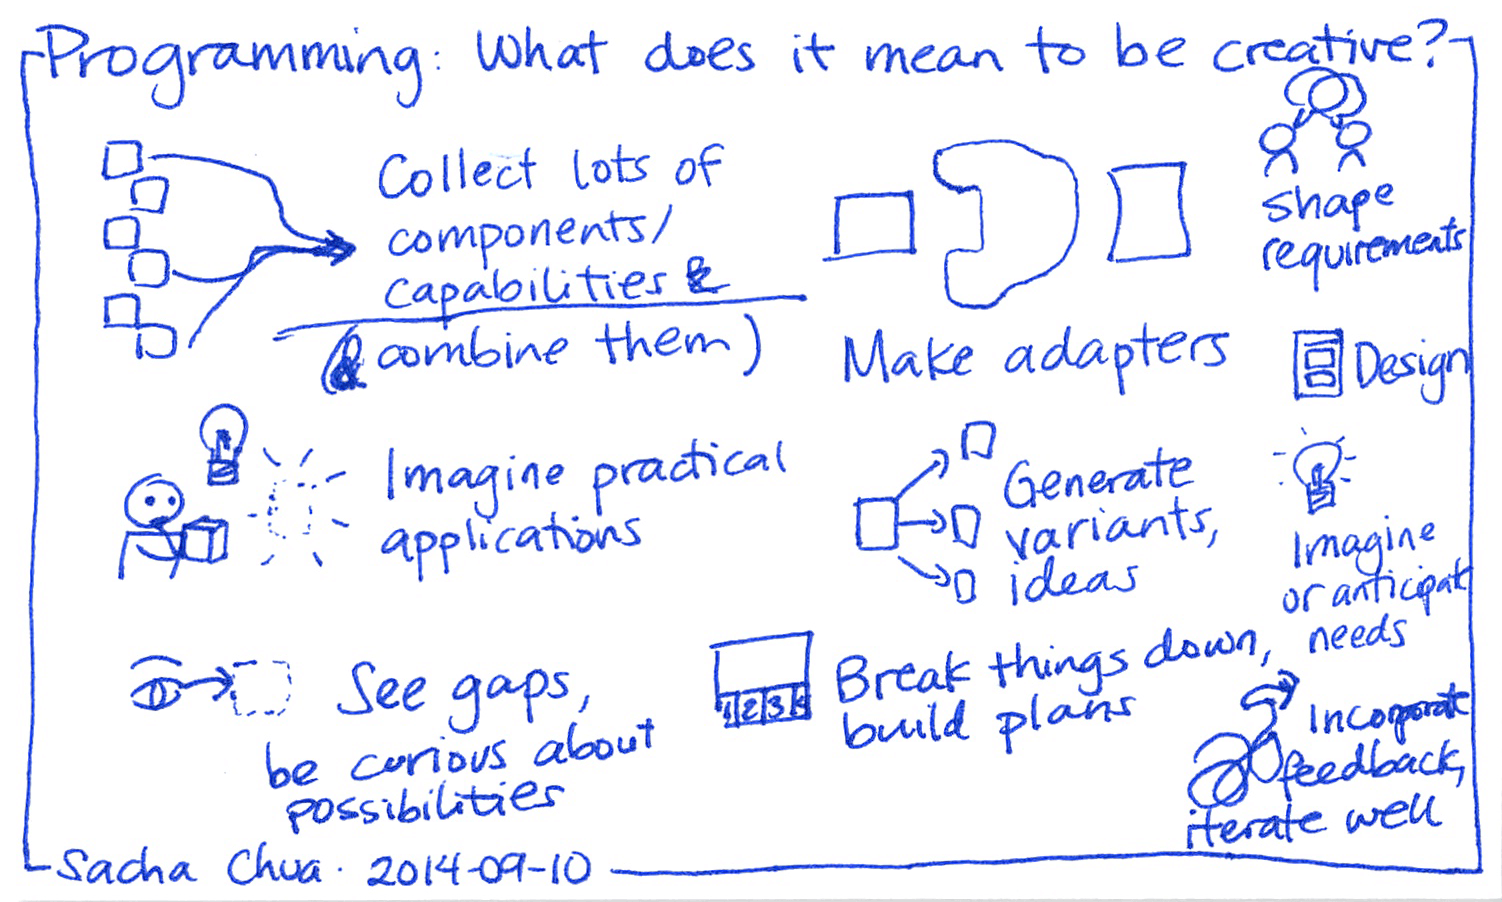 Programming: What does it mean to be creative?
Collect lots of
components/
capabilities &
(& combine them)
Make adapters
shape
requirements
Design
Imagine practical
applications
Generate
variants,
ideas
Imagine
or anticipate
needs
See gaps,
be curious about
possibilities
1 2 3 4
Break things down,
build plans
Incorporate
feedback,
iterate well
Sacha Chua · 2014-09-10